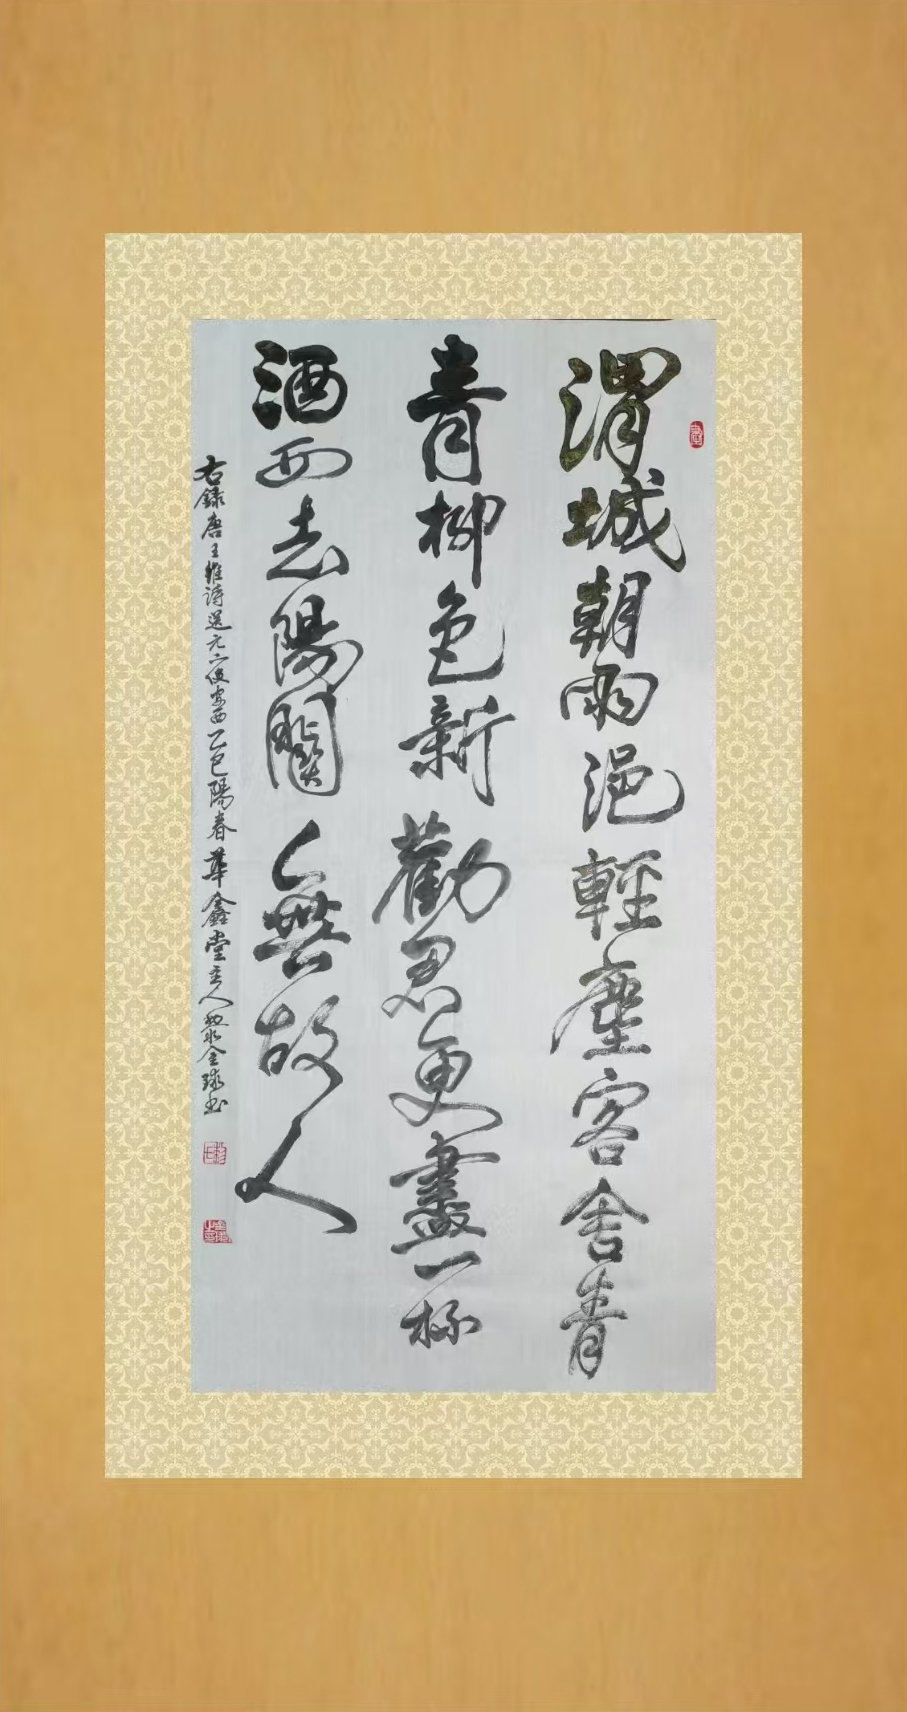 渭城朝雨浥輕塵客舍青
青柳色新勸君更盡一杯
酒西出陽關無故人
右錄唐王維詩送元二使安西乙巳陽春華鑫堂主人黎金球书